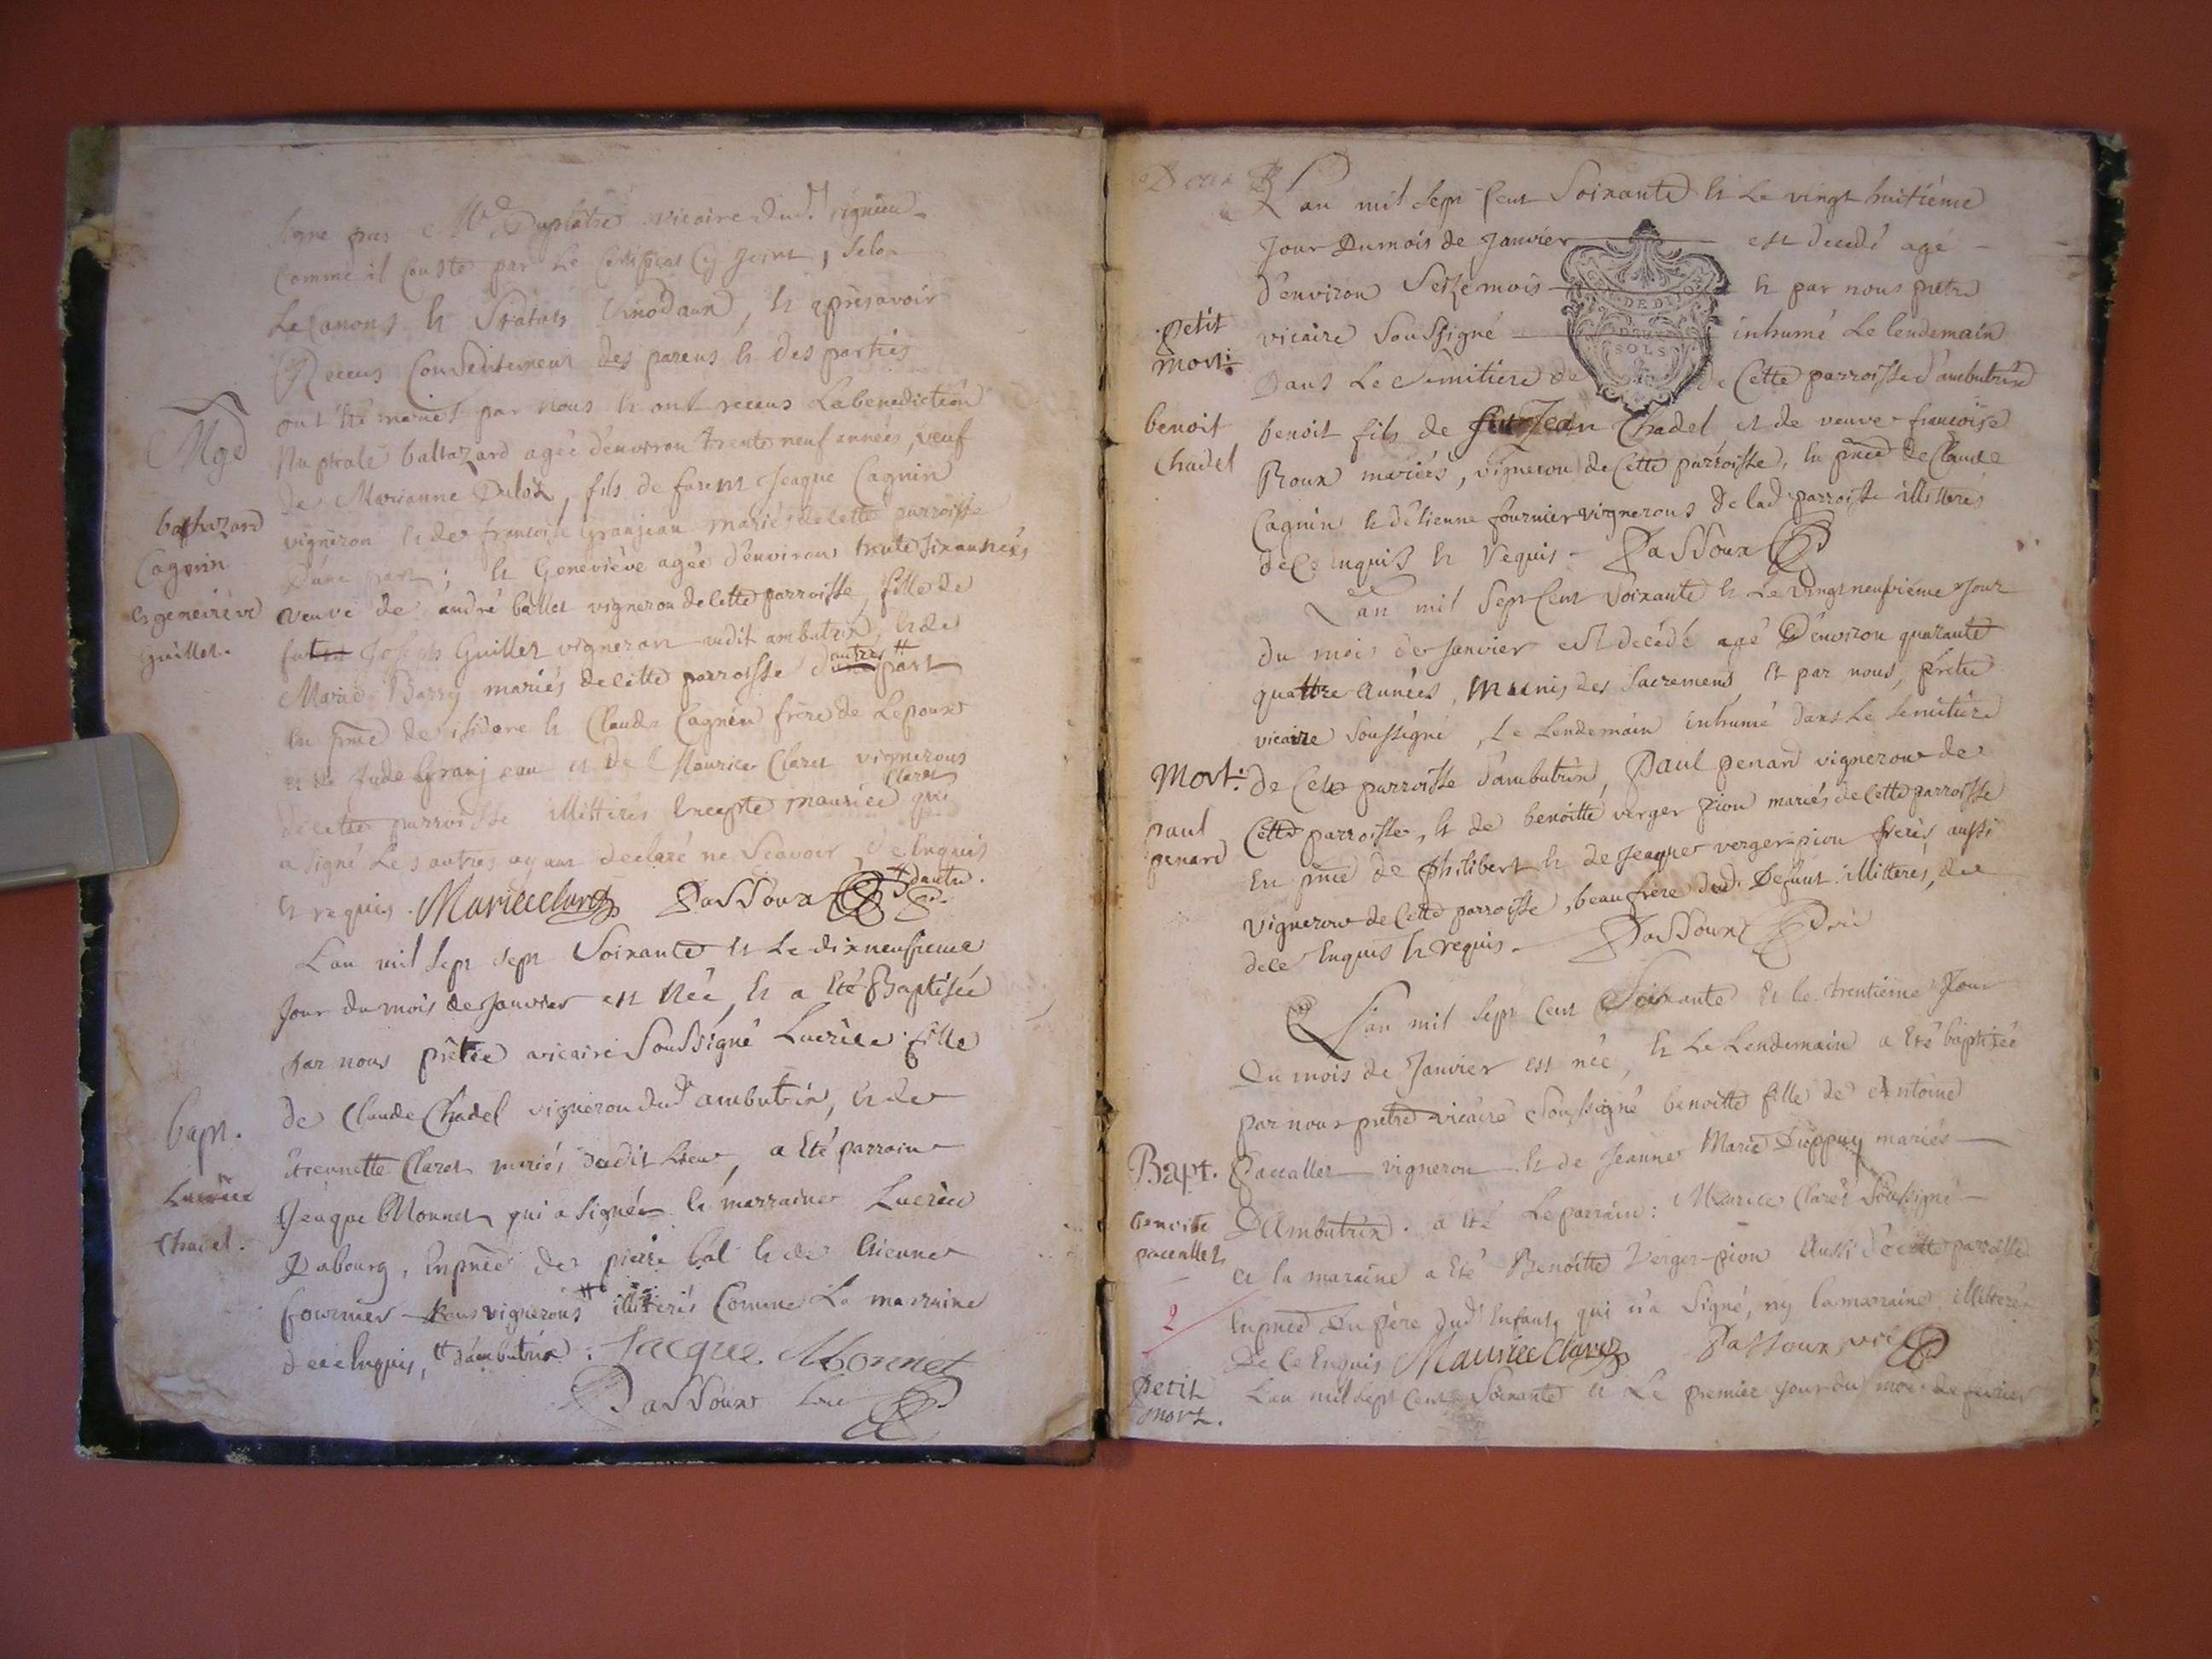 signé par Mre Duplatre vicaire dud. vigneu
Comme il Conste par le Certificat Cy joint, selon
Le Canons et Statuts Sinodaux, et apres avoir
Receus Consentement des parens et des parties
ont été mariés par nous et ont receus La benediction
Mge
Nuptiale baltazard agée d'environ trente neuf années, veuf
de Marianne Duloz, fils de Jeaque Cagnin
vigneron et de francoise Granjean mariés de cette parroisse
baltazard
Cagnin
et genevieve
Guillet.
D'une part; et Geneviève agée d'environ trente six années
veuve de andré ballet vigneron de cette parroisse, fille de
Joseph Guillet vigneron audit ambutrix, et de
Marie Barry mariés de cette parroisse d'autre part
En pnce de isidore et Claude Cagnin frère de Lepoux
et de Jude Granjean et de Maurice Claret vignerons
Claret
de cette parroisse illittérés Excepté maurice qui
a signé Les autres ayant declaré ne Scavoir, de Enquis
d'autre.
et requis. Maurice claret Passoux
L'an mil sept sept Soixante et Le dixneufieme
Jour du mois de Janvier est Née, et a été Baptisée
par nous prêtre vicaire Soussigné Lucrèce fille
de Claude Chadel vigneron dud ambutrix, et de
bapt.
étiennette Claret mariés dudit Lieu, a été parrain
Lucrèce
Chadel.
Jeaque Monnet qui a signé et marraine Lucrèce
Dabourg, En pnce de pierre bal et de Etienne
fournier tous vignerons illiterés Comme La marraine
de ce Enquis, d'ambutrix. Jacque Monnet
Passoux vic
Deux
L'an mil sept Cent Soixante et Le vingt huitiéme
Jour Du mois de Janvier est decedé agé
d'environ Seize mois et par nous pretre
DE DIJON
DEUX
SOLS
petit
mort:
vicaire Soussigné inhumé Le lendemain
Dans Le Cimitiere de de Cette parroisse d'ambutrix
benoit
Chadel
benoit fils de Jean Chadel et de veuve francoise
Roux mariés, vigneron de Cette parroisse, En pnce de Claude
Cagnin et d'étienne fournier vignerons de lad parroisse illitterés
de Ce enquis et requis - Passoux
L'an mil Sept Cent Soixante et Le vingt neufiéme Jour
du mois de Janvier est decédé agé D'environ quarante
quattre années, munis des Sacremens, et par nous, prêtre
vicaire Soussigné, Le Lendemain inhumé dans Le Cemitière
Mort:
de Cette parroisse d'ambutrix, Paul penard vigneron de
paul
penard
Cette parroisse, et de benoitte verger pion mariés de cette parroisse
En pnce de philibert et de Jeaque verger-pion frerès, aussi
vigneron de Cette parroisse, beaufrere dud. Defunt. illitteres, de
de ce Enquis et requis - Passoux Vic
L'an mil sept Cent Soixante et le trentième Jour
Du mois de Janvier est née, et Le Lendemain a Eté baptisée
par nous pretre vicaire Soussigné benoitte fille de Antoine
Bapt.
Paccallet vigneron et de Jeanne Marie Duppuy mariés
benoite
paccallet
D'Ambutrix. a été Le parrain: Maurice Claret Soussigné
et la maraine a Eté Benoitte Verger-pion Aussi de cette parroisse
2
En pnce Du père dud Enfant, qui n'a Signé, ny la marraine illitteré
De Ce Enquis Maurice Claret Passoux vic
petit
mort.
L'an mil sept Cent Soixante et Le premier jour du mois de fevrier